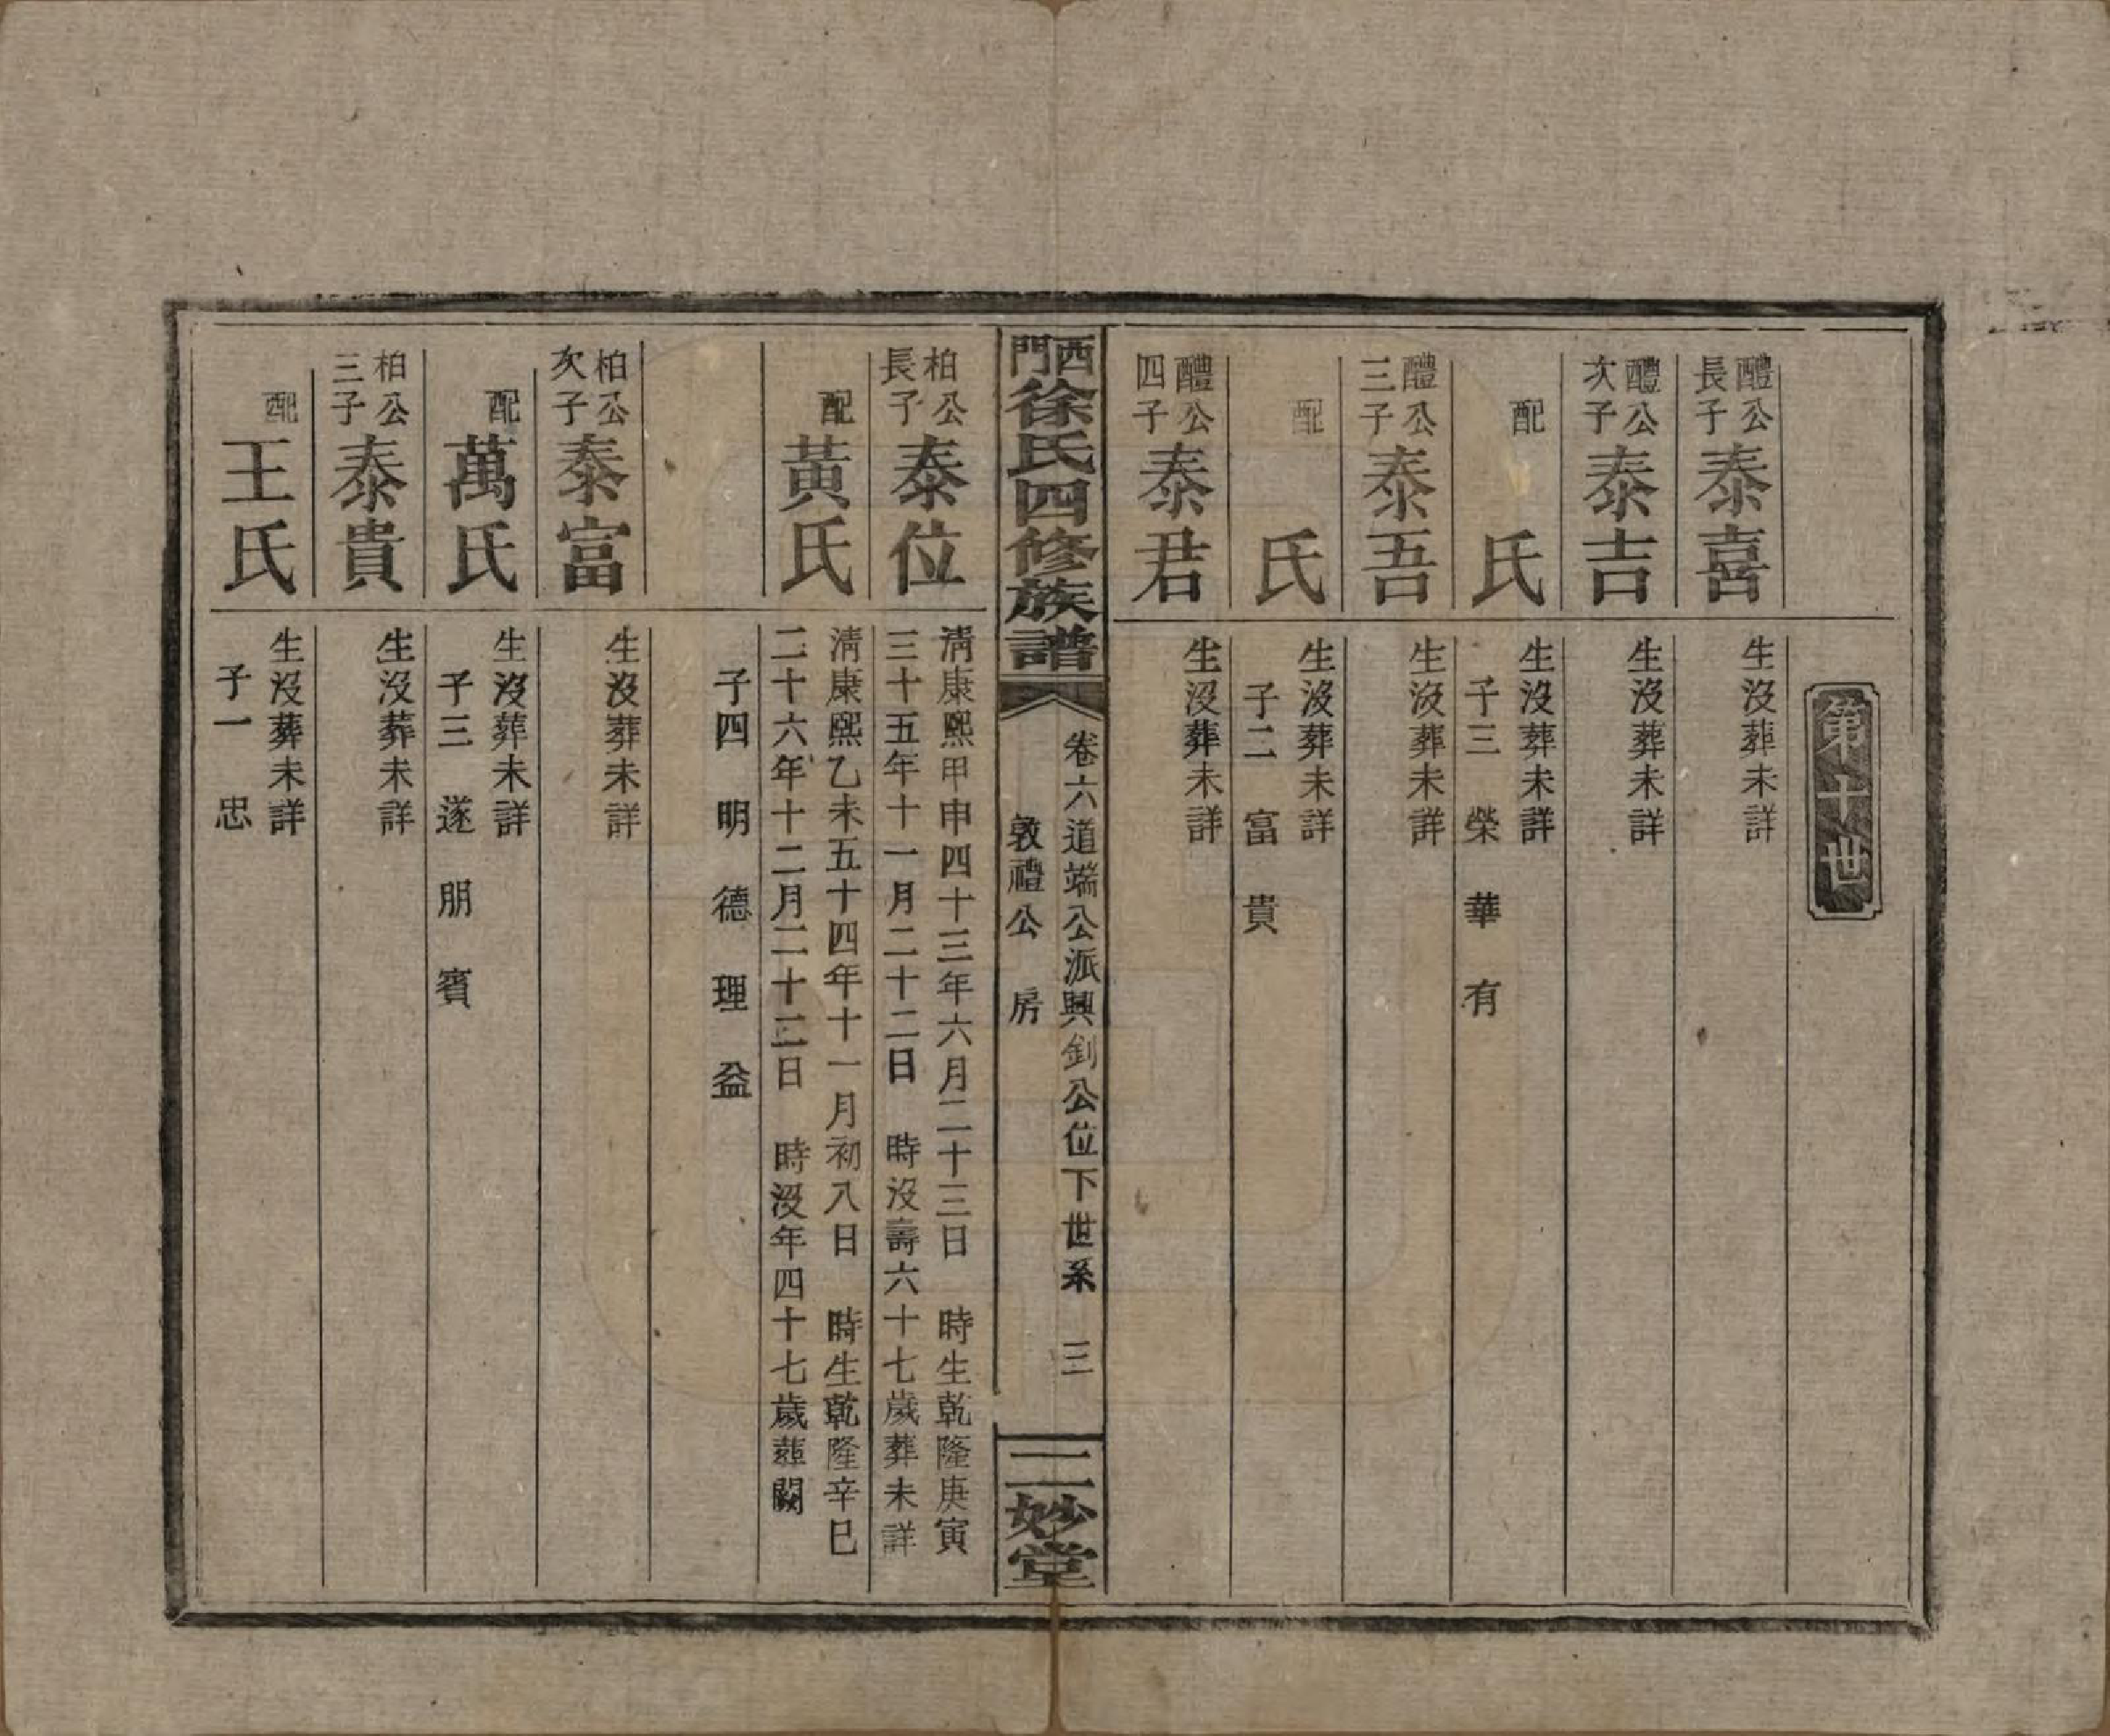 第十世
醴公長子 泰喜
生沒葬未詳
醴公次子 泰吉
生沒葬未詳
配 氏
生沒葬未詳
子三 榮 華 有
醴公三子 泰吾
生沒葬未詳
配 氏
生沒葬未詳
子二 富 貴
醴公四子 泰君
生沒葬未詳
西門徐氏四修族譜
卷六道端公派興釗公位下世系 三
敦禮公 房
二妙堂
柏公長子 泰位
淸康熙甲申四十三年六月二十三日 時生乾隆庚寅
三十五年十一月二十二日 時沒壽六十七歲葬未詳
配 黃氏
淸康熙乙未五十四年十一月初八日 時生乾隆辛巳
二十六年十二月二十二日 時沒年四十七歲葬闕
子四 明 德 理 益
柏公次子 泰富
生沒葬未詳
配 萬氏
生沒葬未詳
子三 遂 朋 賓
柏公三子 泰貴
生沒葬未詳
配 王氏
生沒葬未詳
子一 忠